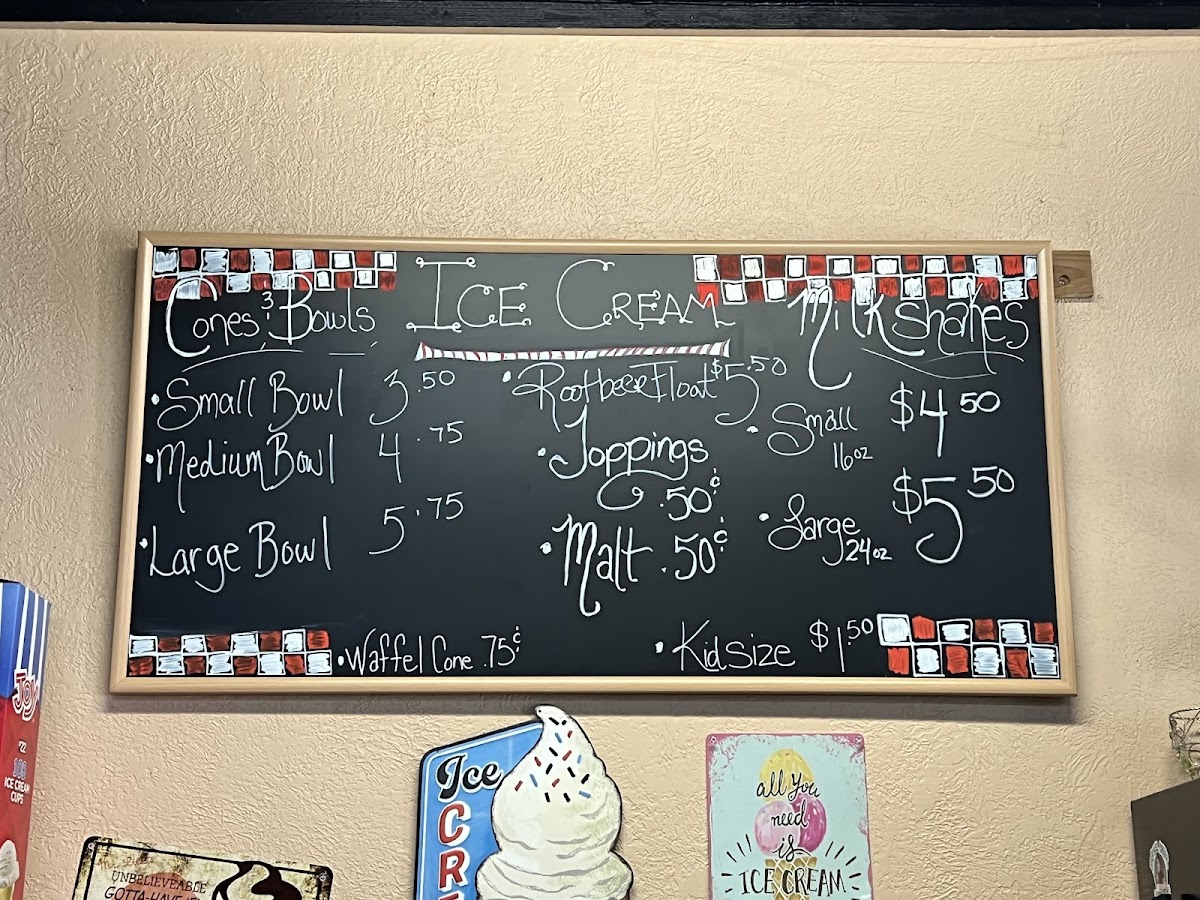 ICE CREAM
Cones & Bowls
• Small Bowl 3.50
• Medium Bowl 4.75
• Large Bowl 5.75
• Waffel Cone .75¢
• Rootbeer Float $5.50
• Toppings
.50¢
• Malt .50¢
• Kidsize $1.50
Milkshakes
• Small $4.50
16oz
• Large $5.50
24oz
JOY
#22
108
ICE CREAM
CUPS
UNBELIEVEABLE
Ice
CRE
all you
need
is
ICE CREAM